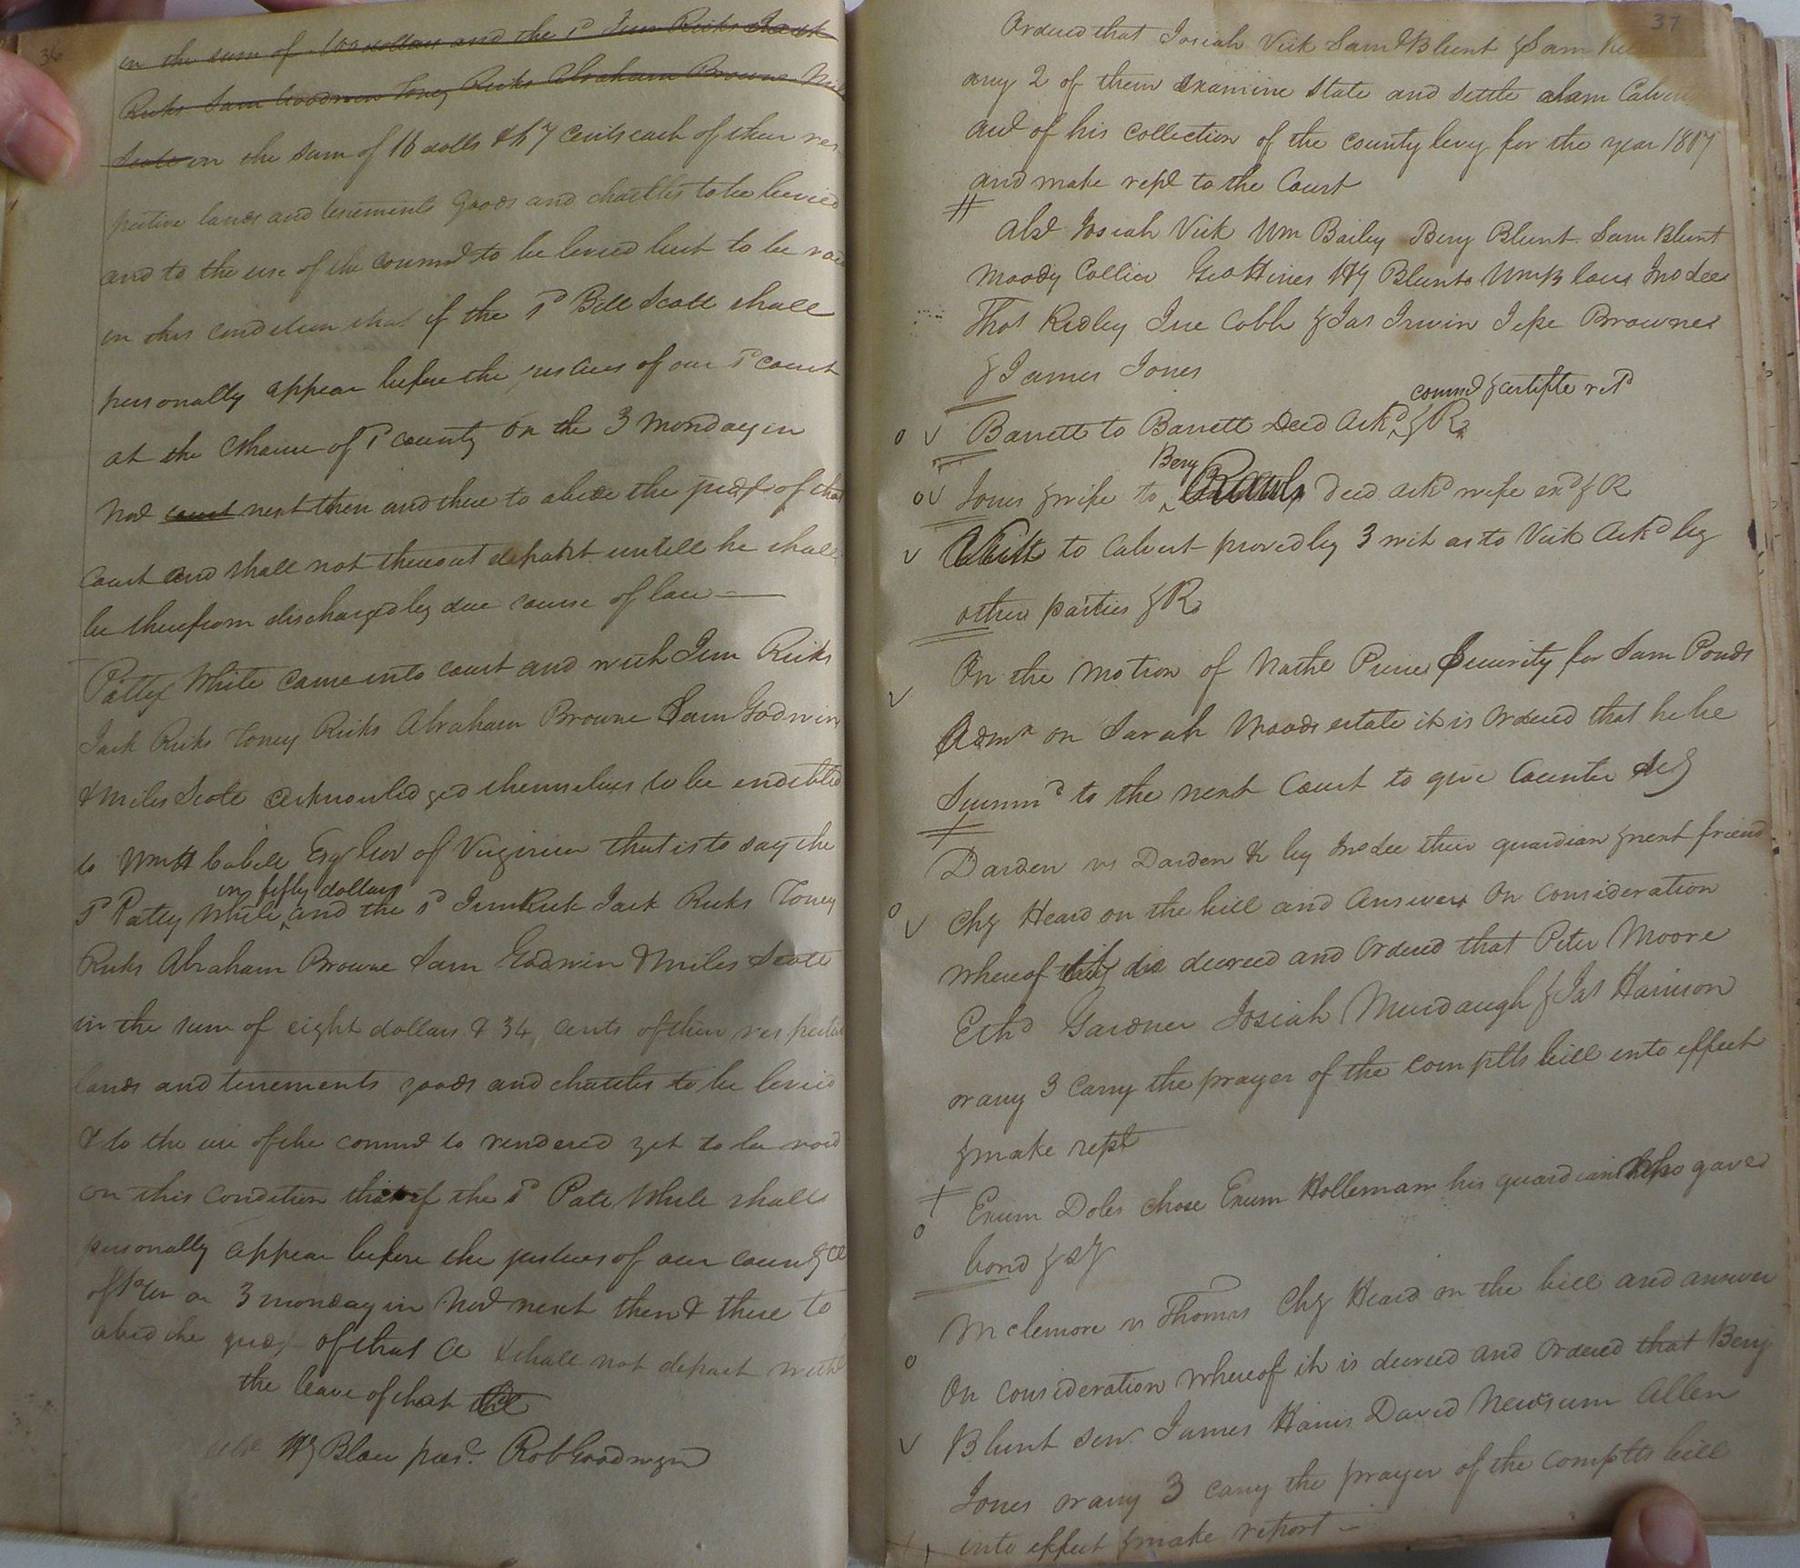 36
in the sum of 100 dollars and the sd Jim Ricks Jack
Ricks Sam Goodwin Toney Ricks Abraham Browne
Scott in the sum of 16 dolls & 67 cents each of their res
pective lands and tenements goods and chattles to be levied
and to the use of the commd to be levied but to be void
on this condition that if the sd Bill Scott shall
personally appear before the justices of our sd court
at the Chouse of sd county on the 3 monday in
Nov court next then and there to abide the judgt of that
Court and shall not thereout depart untill he shall
be therefrom discharged by due course of law
Patty White came into court and with Jim Ricks
Jack Ricks Toney Ricks Abraham Browne Sam Godwin
& Miles Scott acknowledged themselves to be endebted
to Wm H Cabell Esqr Gov of Virginia that is to say the
in fifty dollars
sd Patty White and the sd Jim Rick Jack Ricks Toney
Ricks Abraham Browne Sam Godwin & Miles Scott
in the sum of eight dollars & 34 cents of their respective
lands and tenements goods and chattles to be levied
& to the use of the commd to rendered yet to be void
on this condition that if the sd Patt White shall
personally appear before the justices of our county Ct
on 3 monday in Nov next then & there to
abid the judgt of that Ct & shall not depart witht
the leave of that Ct
Hy Blow Rob Goodwyn
37
Ordered that Josiah Vick Saml Blunt & Sam
any 2 of them Examine State and settle adam Calvert
acct of his collection of the county levy for the year 1807
and make rept to the Court
Abst Josiah Vick Wm Bailey Benj Blunt Sam Blunt
Moody Collier Geo Hines Hy Blunt Wm Blow Jno Lee
Thos Ridley Jne Cobb & Jas Irwin Jesse Browne
& James Jones
commd & certifte retd
Barrett to Barrett Deed Ackd & R
Benj
Jones & wife to Rawls Deed Ackd wife exd & R
to Calvert proved by 3 wit as to Vick Ackd by
other parties & R
On the motion of Nathl Security for Sam Ponds
Admr on Sarah Woods estate it is Ordered that he be
Summd to the next Court to give Counter Secy
Darden vs Darden & by Jno Lee their guardian & next friend
Chy Heard on the bill and Answer On Consideration
whereof decreed and Ordered that Peter Moore
Ethd Gardner Josiah Murdaugh & Jas Harrison
or any 3 carry the prayer of the complts bill into effect
& make rept
Exum Doles chose Exum Holleman his guardian who gave
bond & sy
Mclemore vs Thomas Chy Heard on the bill and answer
On consideration whereof it is decreed and Ordered that Benj
Blunt senr James Harris David Newsum Allen
Jones or any 3 carry the prayer of the complts bill
into effect & make retort